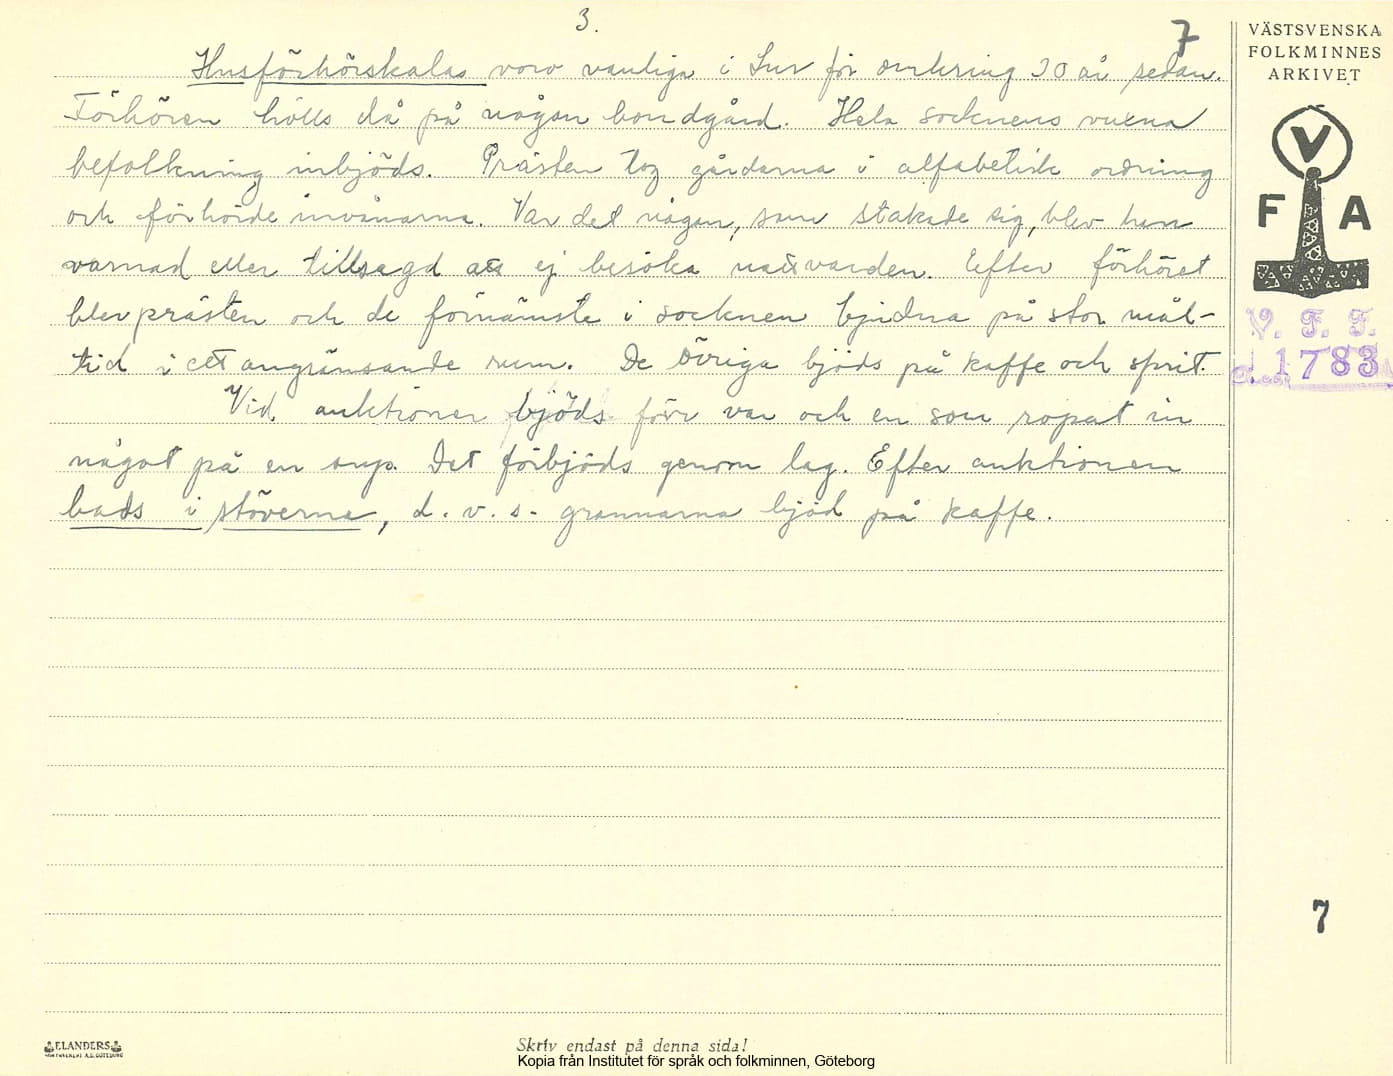 3.
7
Husförhörskalas voro vanliga i Lur för omkring 30 år sedan.
Förhören hölls då på någon bondgård. Hela socknens vuxna
befolkning inbjöds. Prästen tog gårdarna i alfabetisk ordning
och förhörde invånarna. Var det någon, som stakade sig, blev han
varnad eller tillsagd att ej besöka nattvarden. Efter förhöret
blev prästen och de förnämsta i socknen bjudna på stor mål-
tid i ett angränsande rum. De övriga bjöds på kaffe och sprit.
Vid auktioner bjöds förr var och en som ropat in
något på en sup. Det förbjöds genom lag. Efter auktionen
bads i stöverna, d.v.s. grannarna bjöd på kaffe.
VÄSTSVENSKA
FOLKMINNES
ARKIVET
V
F A
V. F. F.
1783
7
ELANDERS
Skriv endast på denna sida!
Kopia från Institutet för språk och folkminnen, Göteborg